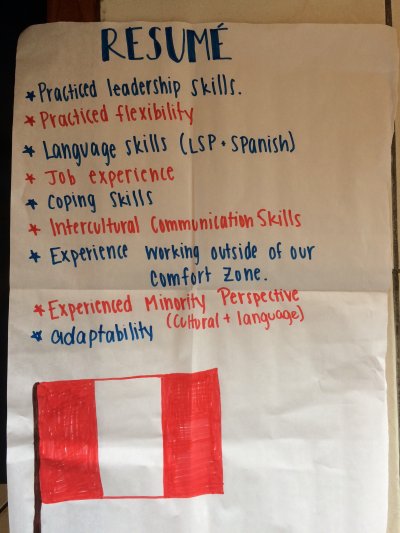 RESUMÉ
* Practiced leadership skills.
* Practiced flexibility
* Language skills (LSP + Spanish)
* Job experience
* Coping Skills
* Intercultural Communication Skills
* Experience working outside of our
comfort zone.
* Experienced Minority Perspective
(Cultural + language)
* adaptability